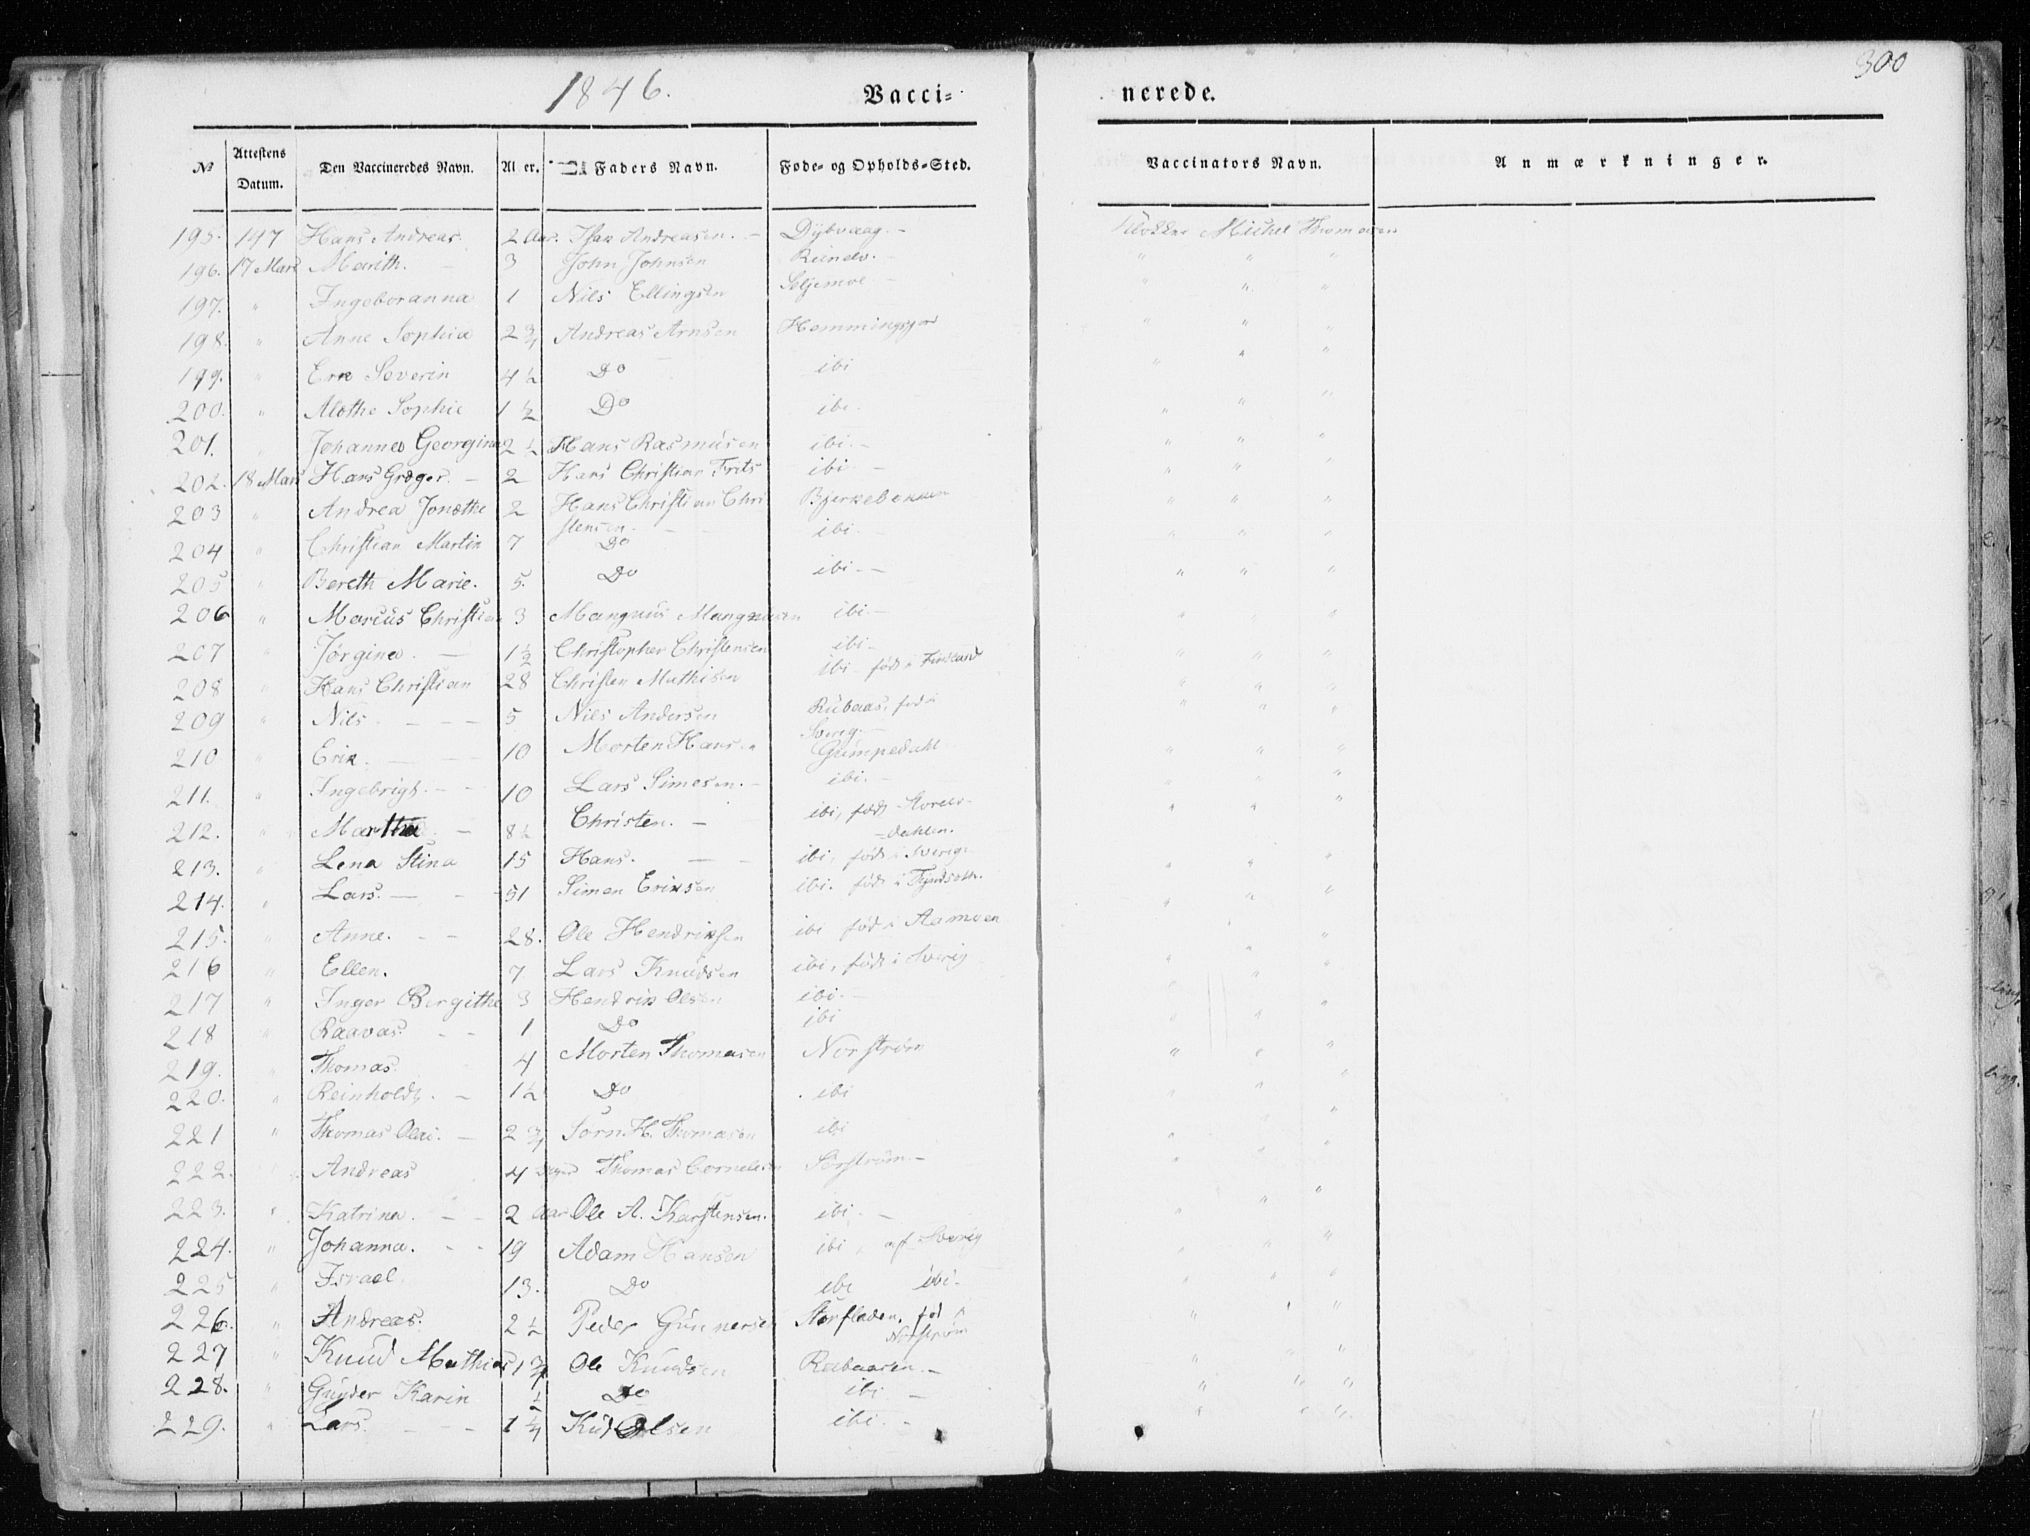 300
1846.
Vacci-
nerede.
№ Attestens Datum. Den Vaccineredes Navn. Al er. Faders Navn. Føde- og Opholds-Sted. Vaccinators Navn. Anmærkninger.
195. 147 Hans Andreas. 2 Aar. Isak Andreasen. — Dybvaag. — Michel Thomasen
196. 17 Mars Marith. — 3 John Johnsen — " " "
197. " Ingeboranna 1 Nils Ellingsen — " " "
198. " Anne Sophia 2 3/4 Andreas Arnsen " " "
199. " Erik Severin 4 ½ Do ibi " " "
200. " Alethe Sophie 1 ½ Do ibi. " " "
201. " Johannes Georginus 2 ½ Hans Rasmusen ibi. — " " "
202. 18 Mars Hans Grøger. — 2 Hans Christian Frits ibi — " " "
203 " Andrea Jonethe 2 Hans Christian Chri " " "
stensen. —
204 " Christian Martin 7 Do ibi. " " "
205 " Bereth Marie. 5. Do ibi. — " " "
206 " Marcus Christian 3 Mangnus Mangnusen ibi. — " " "
207 " Jørgina. — 1 ½ Christopher Christensen ibi. " " "
208 " Hans Christian 28 Christen Mathisen ibi — født i Finland " " "
209 " Nils. — — — 5 Nils Andersen Rubaas, fød i " " "
Sverig. —
210 " Erik. — — 10 Morten Hansen Gumpedahl " " "
211. " Ingebrigt. — — 10 Lars Simesen. — ibi. — " " "
212. " Martha — 8 ½ Christen. — ibi, født Storelv- " " "
=dahlen.
213. " Lena Stina 15 Hans. — — ibi, født i Sverige " " "
214. " Lars. — — 51 Simen Eriksen ibi. født i " " "
215. " Anne. — — 28. Ole Hendriksen ibi født i " "
216 " Ellen. 7 Lars Knudsen ibi, født i Sverig " " "
217 " Inger Bergithe 3 Hendrik Olsen ibi. — " " "
218 " Raavas. — — 1 Do ibi " "
219. " Thomas. 4 Morten Thomasen Norstrøm " " "
220. " Reinholdt. — 1 ½ Do ibi " " "
221 " Thomas Olai. — 2 3/4 Sørn H. Thomasen ibi " " "
222. " Andreas 4 Thomas Cornelesen Sørstrøm. — " " "
223. " Katrina. — — 2 Aar Ole A. Karstensen. ibi. — " " "
224. " Johanna. — — 19 Adam Hansen ibi, af Sverig " " "
225 " Israel. 13. Do ibi ibi. " " "
226. " Andreas. 2 ½ Peder Gunnersen Storfladen. fød i " " "
Norstrøm
227 " Knud Mathias 1 3/4 Ole Knudsen Rubaasen. — " " "
228. " Karin ½ Do ibi — " " "
229. " Lars. — — 1 ¼ Olsen ibi. — " " "